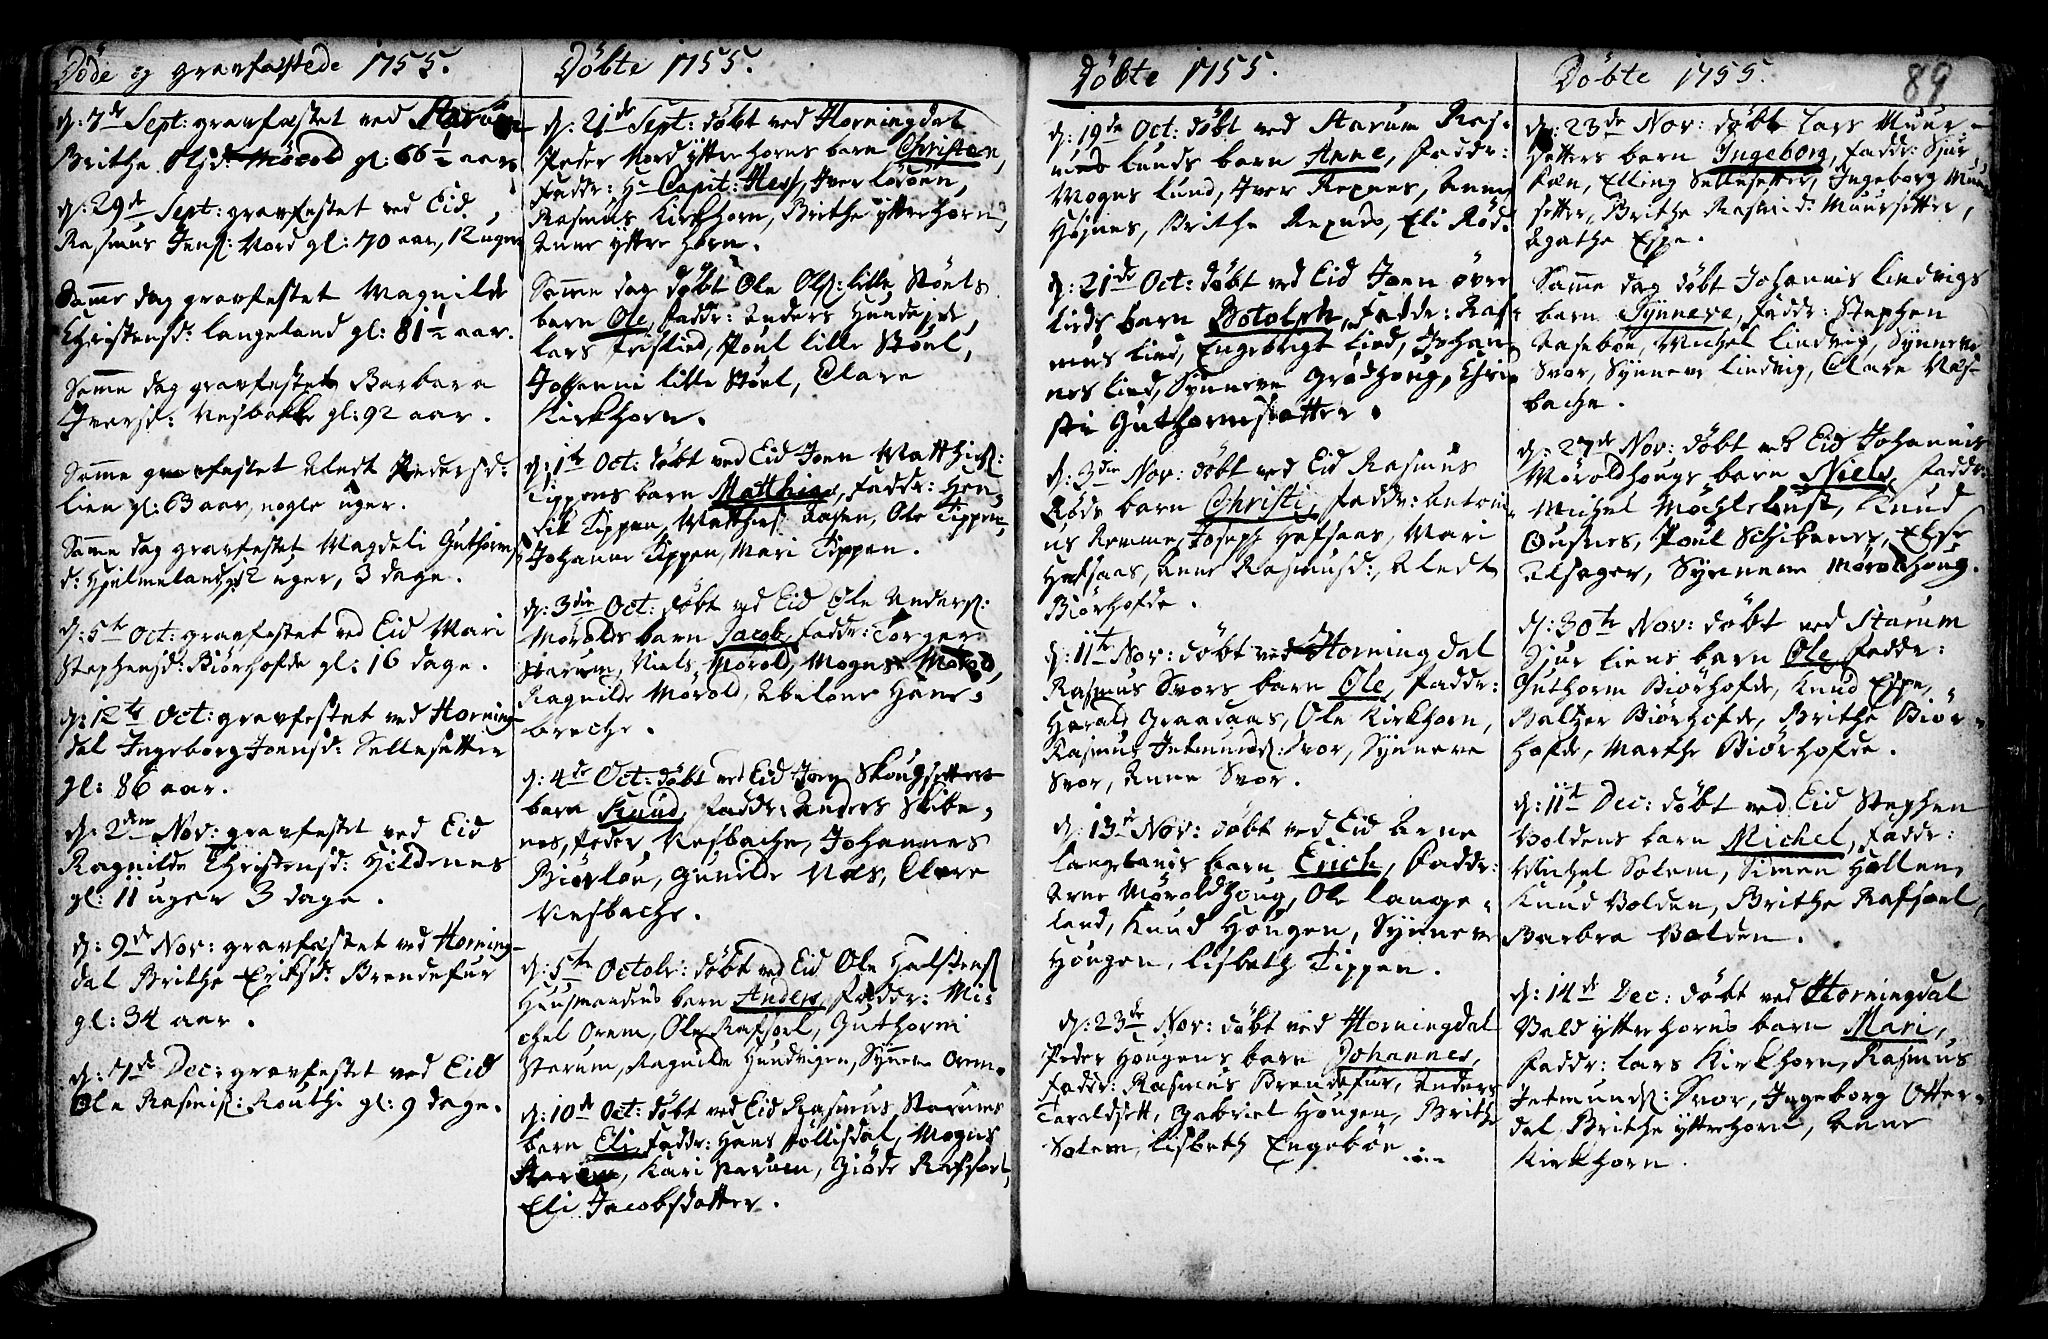 Döde og gravfæstede 1755.
d: 7de Sept: gravfæstet ved Starum
Brithe Olsd: Mörold gl: 66½ aar.
d: 29de Sept: gravfæstet ved Eid
Rasmus Jens: Nord gl: 70 aar, 12 uger
Samme dag gravfæstet Magnilde
Christensd: Langeland gl: 81½ aar.
Samme dag gravfæstet Barbara
Iversd: Nesbakke gl: 92 aar.
Samme gravfæstet Aledt Pedersd:
Lien gl: 63 aar, nogle uger.
Samme dag gravfæstet Magdeli Guthorm
d: Hjelmeland gl: 2 uger, 3 dage.
d: 5te Oct: gravfæstet ved Eid Mari
Stephensd: Biörhofde gl: 16 dage.
d: 12te Oct: gravfæstet ved Horning-
dal Ingeborg Joensd: Sellesetter
gl: 86 aar.
d: 2den Nov: gravfæstet ved Eid
Ragnilde Christensd: Hildenes
gl: 11 uger 3 dage.
d: 9de Nov: gravfæstet ved Horning-
dal Brithe Eriksd: Brendefur
gl: 34 aar.
d: 7de Dec: gravfæstet ved Eid
Ole Rasmus: Routhi gl: 9 dage.
Döbte 1755.
d: 21de Sept: döbt ved Horningdal
Peder Nord ytterhorns barn Christen,
Faddr: Hr Capit: Hess, Iver Lösöen,
Rasmus Kirkhorn, Brithe ytterhorn,
Anne ytterhorn.
Samme dag döbt Ole Ols: lille Stöels
barn Ole, Faddr: Anders Hundeide,
Lars Frislied, Poul lille Stöel,
Johanne lille Stöel, Clare
Kirkhorn.
d: 1te Oct: döbt ved Eid Joen Matthias:
Tippens barn Matthias, Faddr: Hen-
rik Tippen, Matthias: Aasen, Ole Tippen,
Johanne Tippen, Mari Tippen.
d: 3die Oct: döbt ved Eid Ole Anders:
Mörolds barn Jacob, Faddr: Torger
Starum, Niels Mörold, Mogns Mörold,
Ragnilde Mörold, Abelone Hans-
breche.
d: 4de Oct: döbt ved Eid Joen Skougsetters
barn Knud, Faddr: Anders Skibe-
nes, Peder Nesbache, Johannes
Biörlöe, Gunilde Næs, Clare
Nesbache.
d: 5te Octobr: döbt ved Eid Ole Halstens:
Huusmandens barn Anders, Faddr: Mi-
chel Orem, Ole Rafsæl, Guthorm
Starum, Ragnilde Hundvigen, Synneve Orem.
d: 10de Oct: döbt ved Eid Rasmus Starums
barn Eli, Faddr: Hans Föllisdal, Mogns
Starum, Kari Starum, Giöde Rafsæl,
Eli Jacobsdatter.
Döbte 1755.
d: 19de Oct: döbt ved Starum Ras-
mus Lunds barn Anne, Faddr:
Mogns Lund, Iver Rexnes, Anne
Höjnes, Brithe Rexnes, Eli Röd.
d: 21de Oct: döbt ved Eid Joen över
Lieds barn Botolph, Faddr: Ras-
mus Lied, Engebrigt Lied, Johan-
nes Lied, Synneve Grodhoug, Chri-
sti Guthormsdatter.
d: 3die Nov: döbt ved Eid Rasmus
Röds barn Christi, Faddr: Antoni-
us Remme, Joseph Hafsaas, Mari
Hafsaas, Anne Rasmusd:, Aledt
Biörhofde.
d: 11te Nov: döbt ved Horningdal
Rasmus Svors barn Ole, Faddr:
Harald Graadaas, Ole Kirkhorn,
Rasmus Jetmunds: Svor, Synneve
Svor, Anne Svor.
d: 13de Nov: döbt ved Eid Arne
Langelands barn Erich, Faddr:
Arne Möroldhoug, Ole Lange-
land, Knud Hougen, Synneve
Hougen, Lisbeth Tippen.
d: 23de Nov: döbt ved Horningdal
Peder Hougens barn Johannes,
Faddr: Rasmus Brendefur, Anders
Taraldset, Gabriel Hougen, Brithe
Solem, Lisbeth Engeböe.
Döbte 1755.
89
d: 23de Nov: döbt Lars Muur-
setters barn Ingeborg, Faddr: Sjur
Elling Sellesetter, Ingeborg Muur-
setter, Brithe Rasmus: Muursetter,
Agathe Espe.
Samme dag döbt Johannis Lindvigs
barn Synneve, Faddr: Stephen
Aaseböe, Michel Lindvig, Synneve
Svor, Synneve Lindvig, Clare Næs-
bache.
d: 27de Nov: döbt ved Eid Johannis
Möroldhougs barn Niels, Faddr:
Michel Möchlebust, Knud
Ousnes, Poul Schibenes, Else
Alsager, Synneve Möroldhoug.
d: 30te Nov: döbt ved Starum
Sjur Liens barn Ole, Faddr:
Guthorm Biörhofde, Knud Espe,
Baltzer Biörhofde, Brithe Biör-
hofde, Marthe Biörhofde.
d: 11te Dec: döbt ved Eid Stephen
Voldens barn Michel, Faddr:
Michel Solem, Simen Hallen,
Knud Volden, Brithe Rafsæl,
Barbra Volden.
d: 14de Dec: döbt ved Horningdal
Vald ytterhorns barn Mari,
Faddr: Lars Kirkhorn, Rasmus
Jetmunds: Svor, Ingeborg Otter-
dal, Brithe ytterhorn, Anne
Kirkhorn.